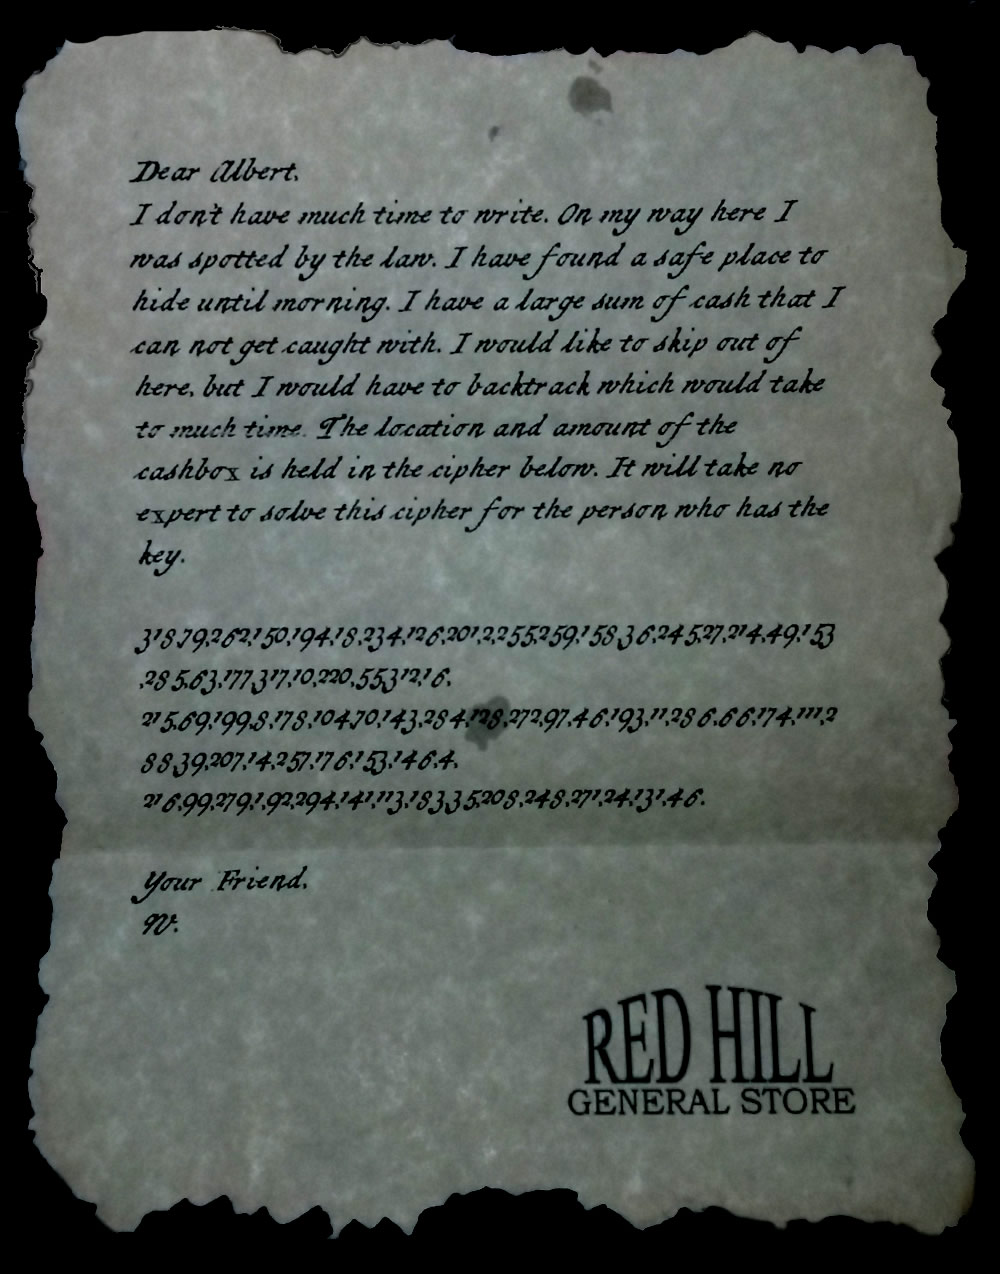 Dear Albert,
I don't have much time to write. On my way here I
was spotted by the law. I have found a safe place to
hide until morning. I have a large sum of cash that I
can not get caught with. I would like to skip out of
here, but I would have to backtrack which would take
to much time. The location and amount of the
cashbox is held in the cipher below. It will take no
expert to solve this cipher for the person who has the
key.
318,79,262,150,194,18,234,126,201,2,255,259,158,36,245,27,214,49,153
,285,63,177,317,10,220,55,312,16.
215,69,199,8,178,104,70,143,284,128,272,97,46,193,11,286,66,174,111,2
88,39,207,14,257,176,153,146,4.
216,99,279,1,92,294,141,113,183,35,208,248,271,24,131,46.
Your Friend,
W.
RED HILL
GENERAL STORE